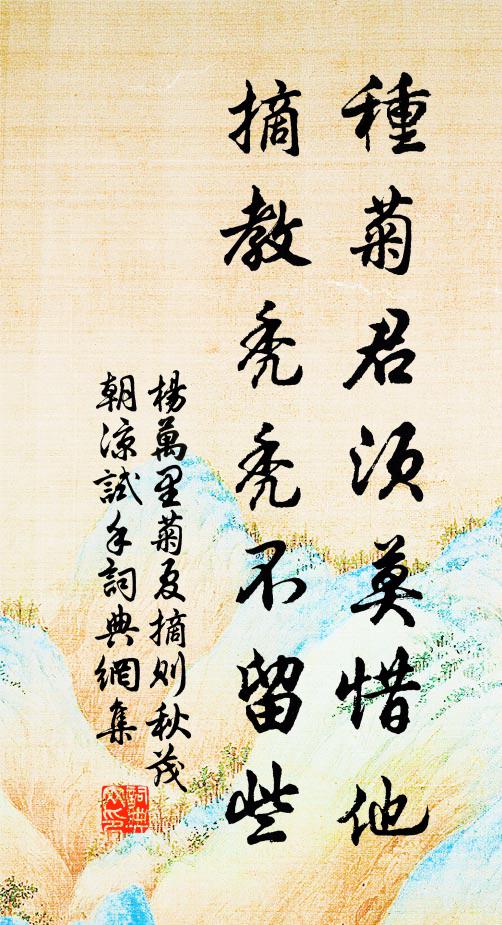 種菊君須莫惜他
摘教禿禿不留些
楊萬里菊夏摘則秋茂
朝涼試手詞典網集